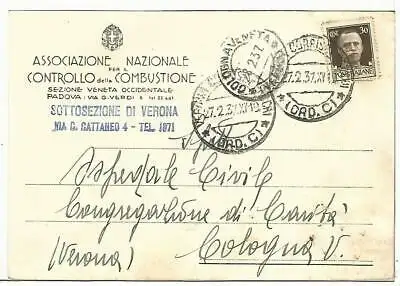 ASSOCIAZIONE NAZIONALE
PER IL
CONTROLLO della COMBUSTIONE
SEZIONE VENETA OCCIDENTALE
PADOVA: VIA G. VERDI
SOTTOSEZIONE DI VERONA
VIA C. CATTANEO 4 - TEL. 1871
COLOGNA VENETA
2.37
VERONA CORRISP
17.2.37.XV 19
(ORD. C)
CORRISP
17.2.37.XV 19
(ORD. C)
30
Spedale Civile
Congregazione di Carità
(Verona) Cologna V.